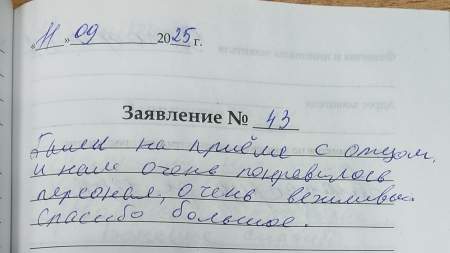 «11» 09 2025 г.
Заявление № 43
Были на приёме с отцом,
и нам очень понравилось
персонал, очень вежливы.
Спасибо большое.